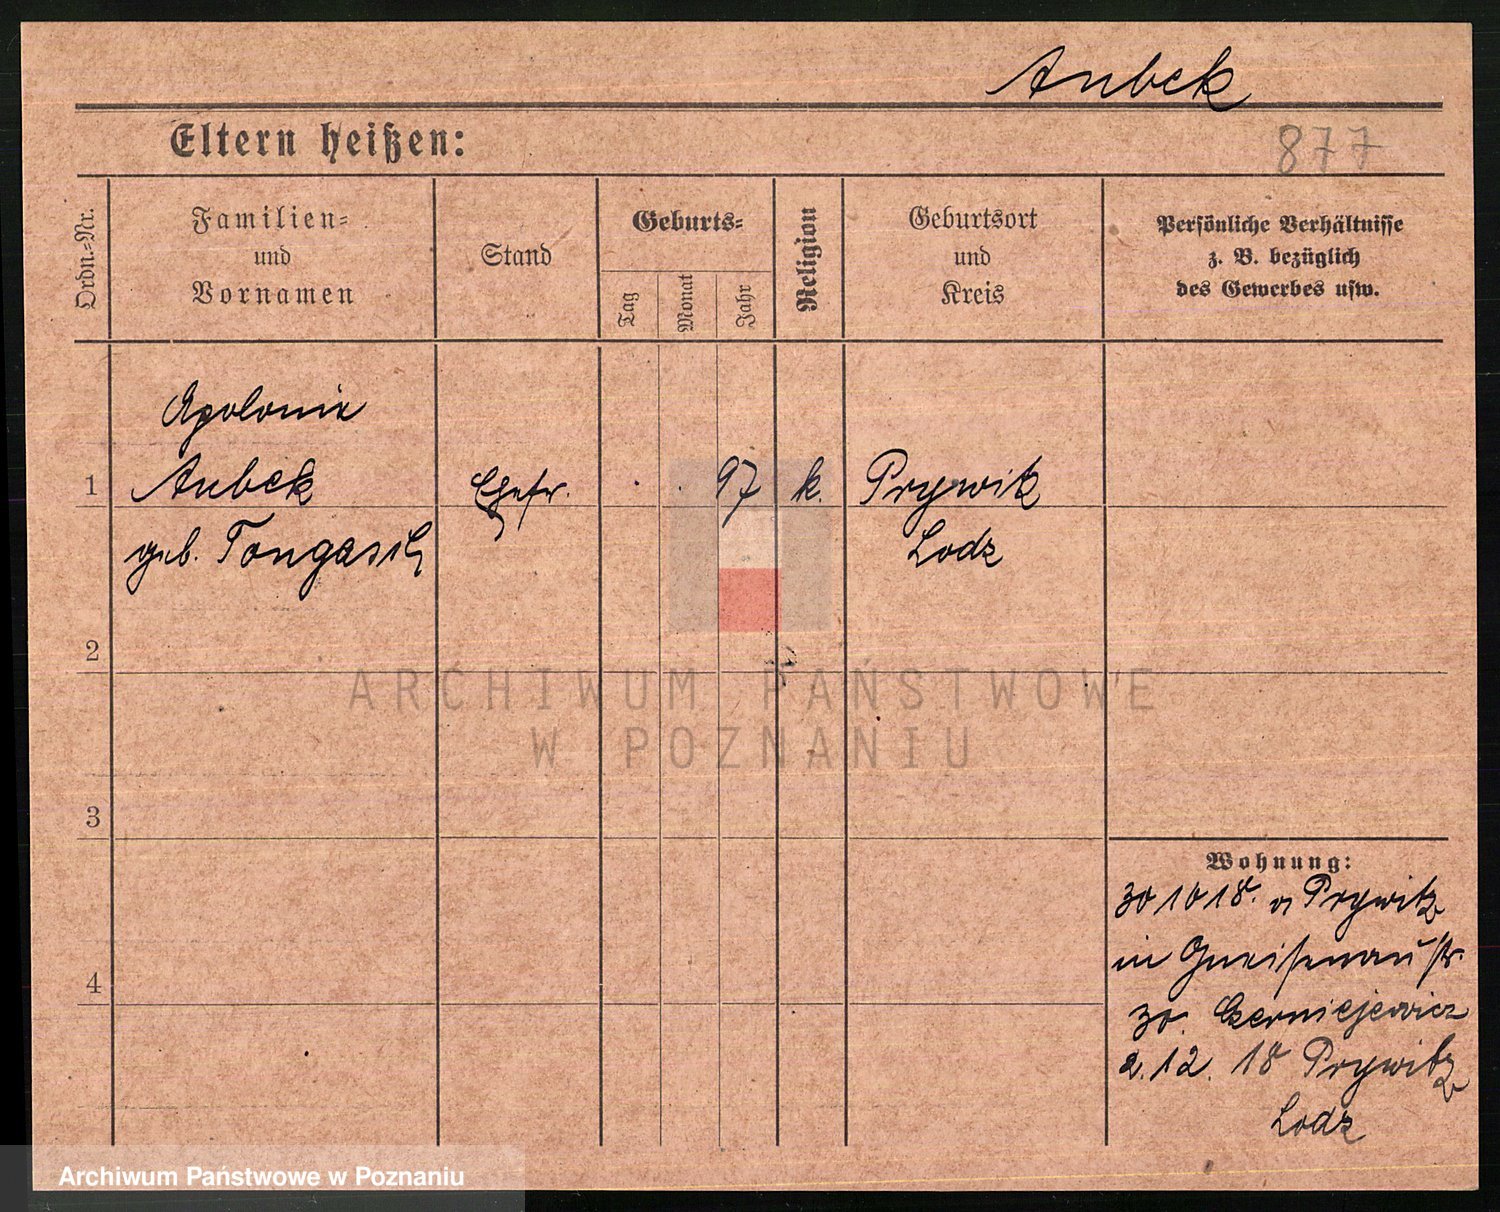 Aubek
Eltern heißen:
877
Ordn.-Nr.
Familien-
und
Vornamen
Stand
Geburts-
Tag
Monat
Jahr
Religion
Geburtsort
und
Kreis
Persönliche Verhältnisse
z. B. bezüglich
des Gewerbes usw.
Apolonie
1 Aubek Ehefr. . . 97 k. Prywik
geb. Lodz
2
ARCHIWUM PAŃSTWOWE
W POZNANIU
3
Wohnung:
30 10 18. v Prywitz
in Gneisenaustr.
4
30. Czerniejewicz
2.12. 18 Prywitz
Lodz
Archiwum Państwowe w Poznaniu